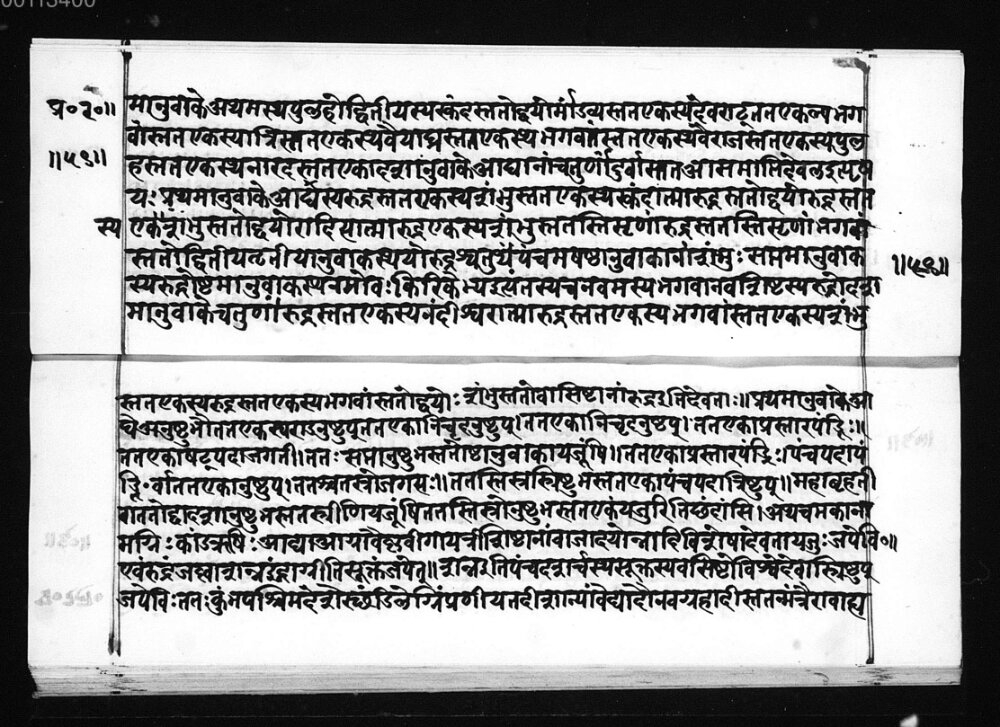 00113400
प्र०२०॥
मानुवाकेअथमस्यपुलहोद्वितीयस्यस्कंदस्ततोद्वयोर्मांडव्यस्ततएकस्यदेवराट्ततएकल्पभग
वांस्ततएकस्यात्रिस्ततएकस्यवैयाघ्रस्ततएकस्यभगवांस्ततएकस्यवैराजस्ततएकस्यपुल
॥५९॥
हस्ततएकस्यनारदस्ततएकादशानुवाकेआद्यानांचतुर्णां
यः प्रथमानुवाकेआद्यस्यरुद्रस्ततएकस्यशंभुस्ततएकस्यस्कंदात्मारुद्रस्ततोद्वयोरुद्रस्तत
स्य
एकशंभुस्ततोद्वयोरादित्यात्मारुद्रएकस्यशंभुस्ततस्तिसृणांरुद्रस्ततस्तिसृणांभगवां
स्ततोद्वितीयतृतीयानुवाकस्ययोरुद्रश्चतुर्थपंचमषष्ठानुवाकानांशंभुः सप्तमानुवाक
॥५९॥
स्यरुद्रोष्टमानुवाकस्यनमोवः किरिकेभ्यइत्यतस्यचनवमस्यभगवानवशिष्टस्यरुद्रोदशा
मानुवाकेचतुर्णांरुद्रस्ततएकस्यनंदीश्वरात्मारुद्रस्ततएकस्यभगवांस्ततएकस्यशंभु
स्ततएकस्यरुद्रस्ततएकस्यभगवांस्ततोद्वयोः शंभुस्ततोवासिष्टानांरुद्रइतिदेवताः॥प्रथमानुवाकेआ
द्येअनुष्टुभौततएकस्यराडनुष्टुप्ततएकानिचृदनुष्टुप्।ततएकानिचृदनुष्टप्।ततएकाप्रस्तारपंक्तिः॥
ततएकाषट्पदाजगती।ततः सप्तानुष्टुभस्ततोष्टानुवाकायजूंषि।ततएकाप्रस्तारपंक्तिः।पंचपदापं
क्तिर्वाततएकानुष्टुप्।ततश्चतस्त्रोजगत्यः॥ततस्तिस्त्रस्त्रिष्टुभस्ततएकापंचपदात्रिष्टुप्॥महाबृहती
वाततोद्वादशानुष्टुभस्ततस्त्रीणियजूंषिततस्तिस्त्रोनुष्टुभस्ततएकंयजुरितिछंदांसि।अथचमकाना
मग्निः कांडऋषिः आद्याआग्नावैष्णवीगायत्रीशिष्टानांवाजादयोन्नादिविशेषादेवतायजुः जपेवि०॥
एवंरुद्रंजप्त्वाशन्नइंद्राग्नीतिसूक्तंजपेत्॥शन्नइतिपंचदशर्चस्यसूक्तस्यवसिष्टोविश्वेदेवास्त्रिष्टुप्
जपेविः ततः कुंभपश्चिमदेशेस्थंडिलेग्निंप्रणीयतदीशान्यांवेद्यादौनवग्रहादींस्तन्मंत्रैरावाह्य